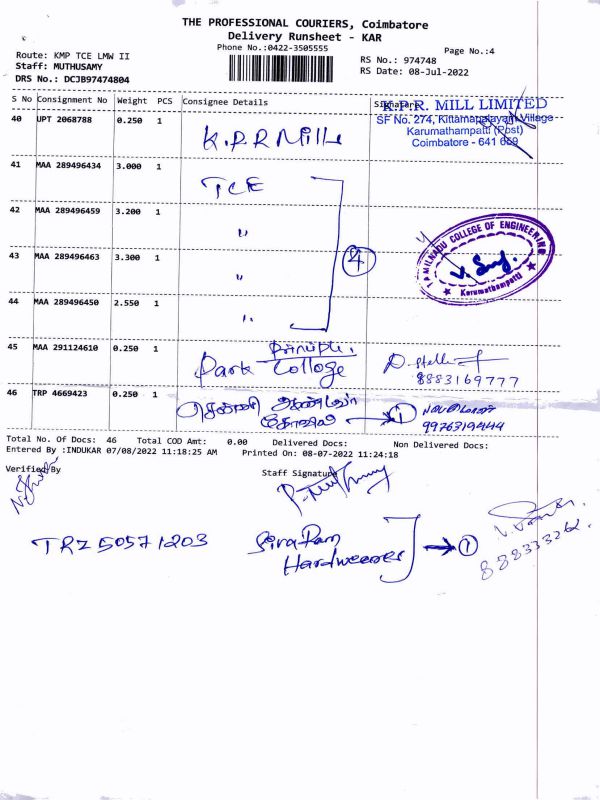 THE PROFESSIONAL COURIERS, Coimbatore
Delivery Runsheet - KAR
Phone No.:0422-3505555
Page No.:4
Route: KMP TCE LMW II
Staff: MUTHUSAMY
DRS No.: DCJB97474804
RS No.: 974748
RS Date: 08-Jul-2022
S No Consignment No Weight PCS Consignee Details Signature
K.P.R. MILL LIMITED
SF No. 274, Kittampalayam Village
Karumathampatti (Post)
Coimbatore - 641 659
40 UPT 2068788 0.250 1 K.P.R Mills
41 MAA 289496434 3.000 1 TCE
42 MAA 289496459 3.200 1 "
43 MAA 289496463 3.300 1 "
4
TAMILNADU COLLEGE OF ENGINEERING
Karumathampatti
44 MAA 289496450 2.550 1 "
45 MAA 291124610 0.250 1 Principle.
Park College
8883169777
46 TRP 4669423 0.250 1
1
9976319444
Total No. Of Docs: 46 Total COD Amt: 0.00 Delivered Docs: Non Delivered Docs:
Entered By :INDUKAR 07/08/2022 11:18:25 AM Printed On: 08-07-2022 11:24:18
Verified By Staff Signature
TRZ 50571203
Hardweares
1
888333262